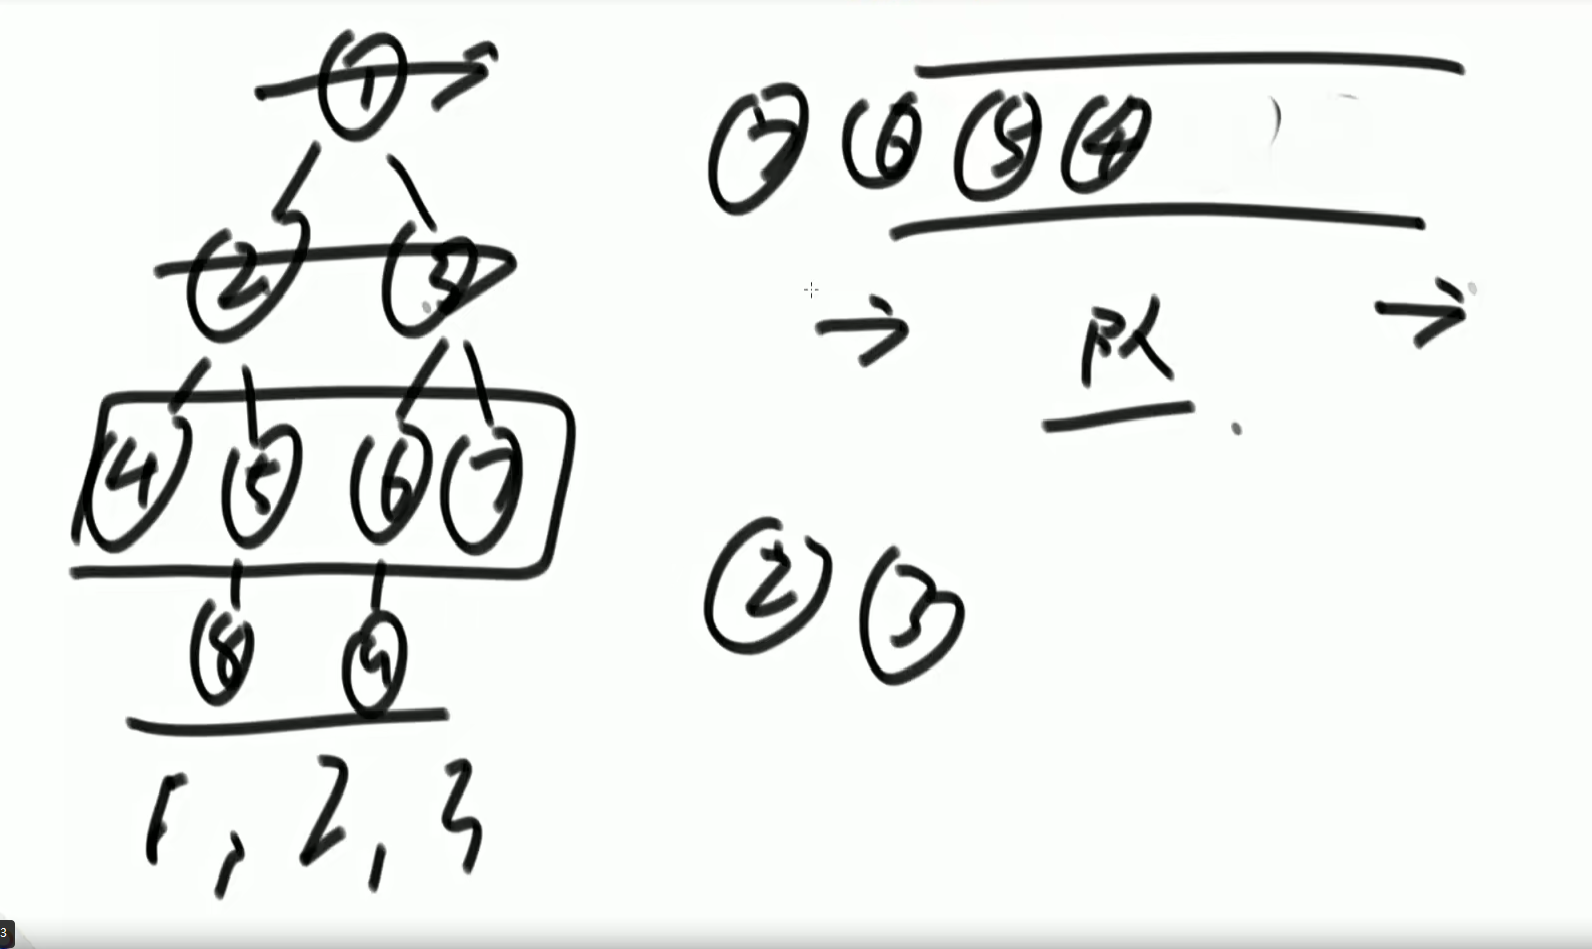 1
2 3
4 5 6 7
8 9
1, 2, 3
7 6 5 4
队
2 3
3